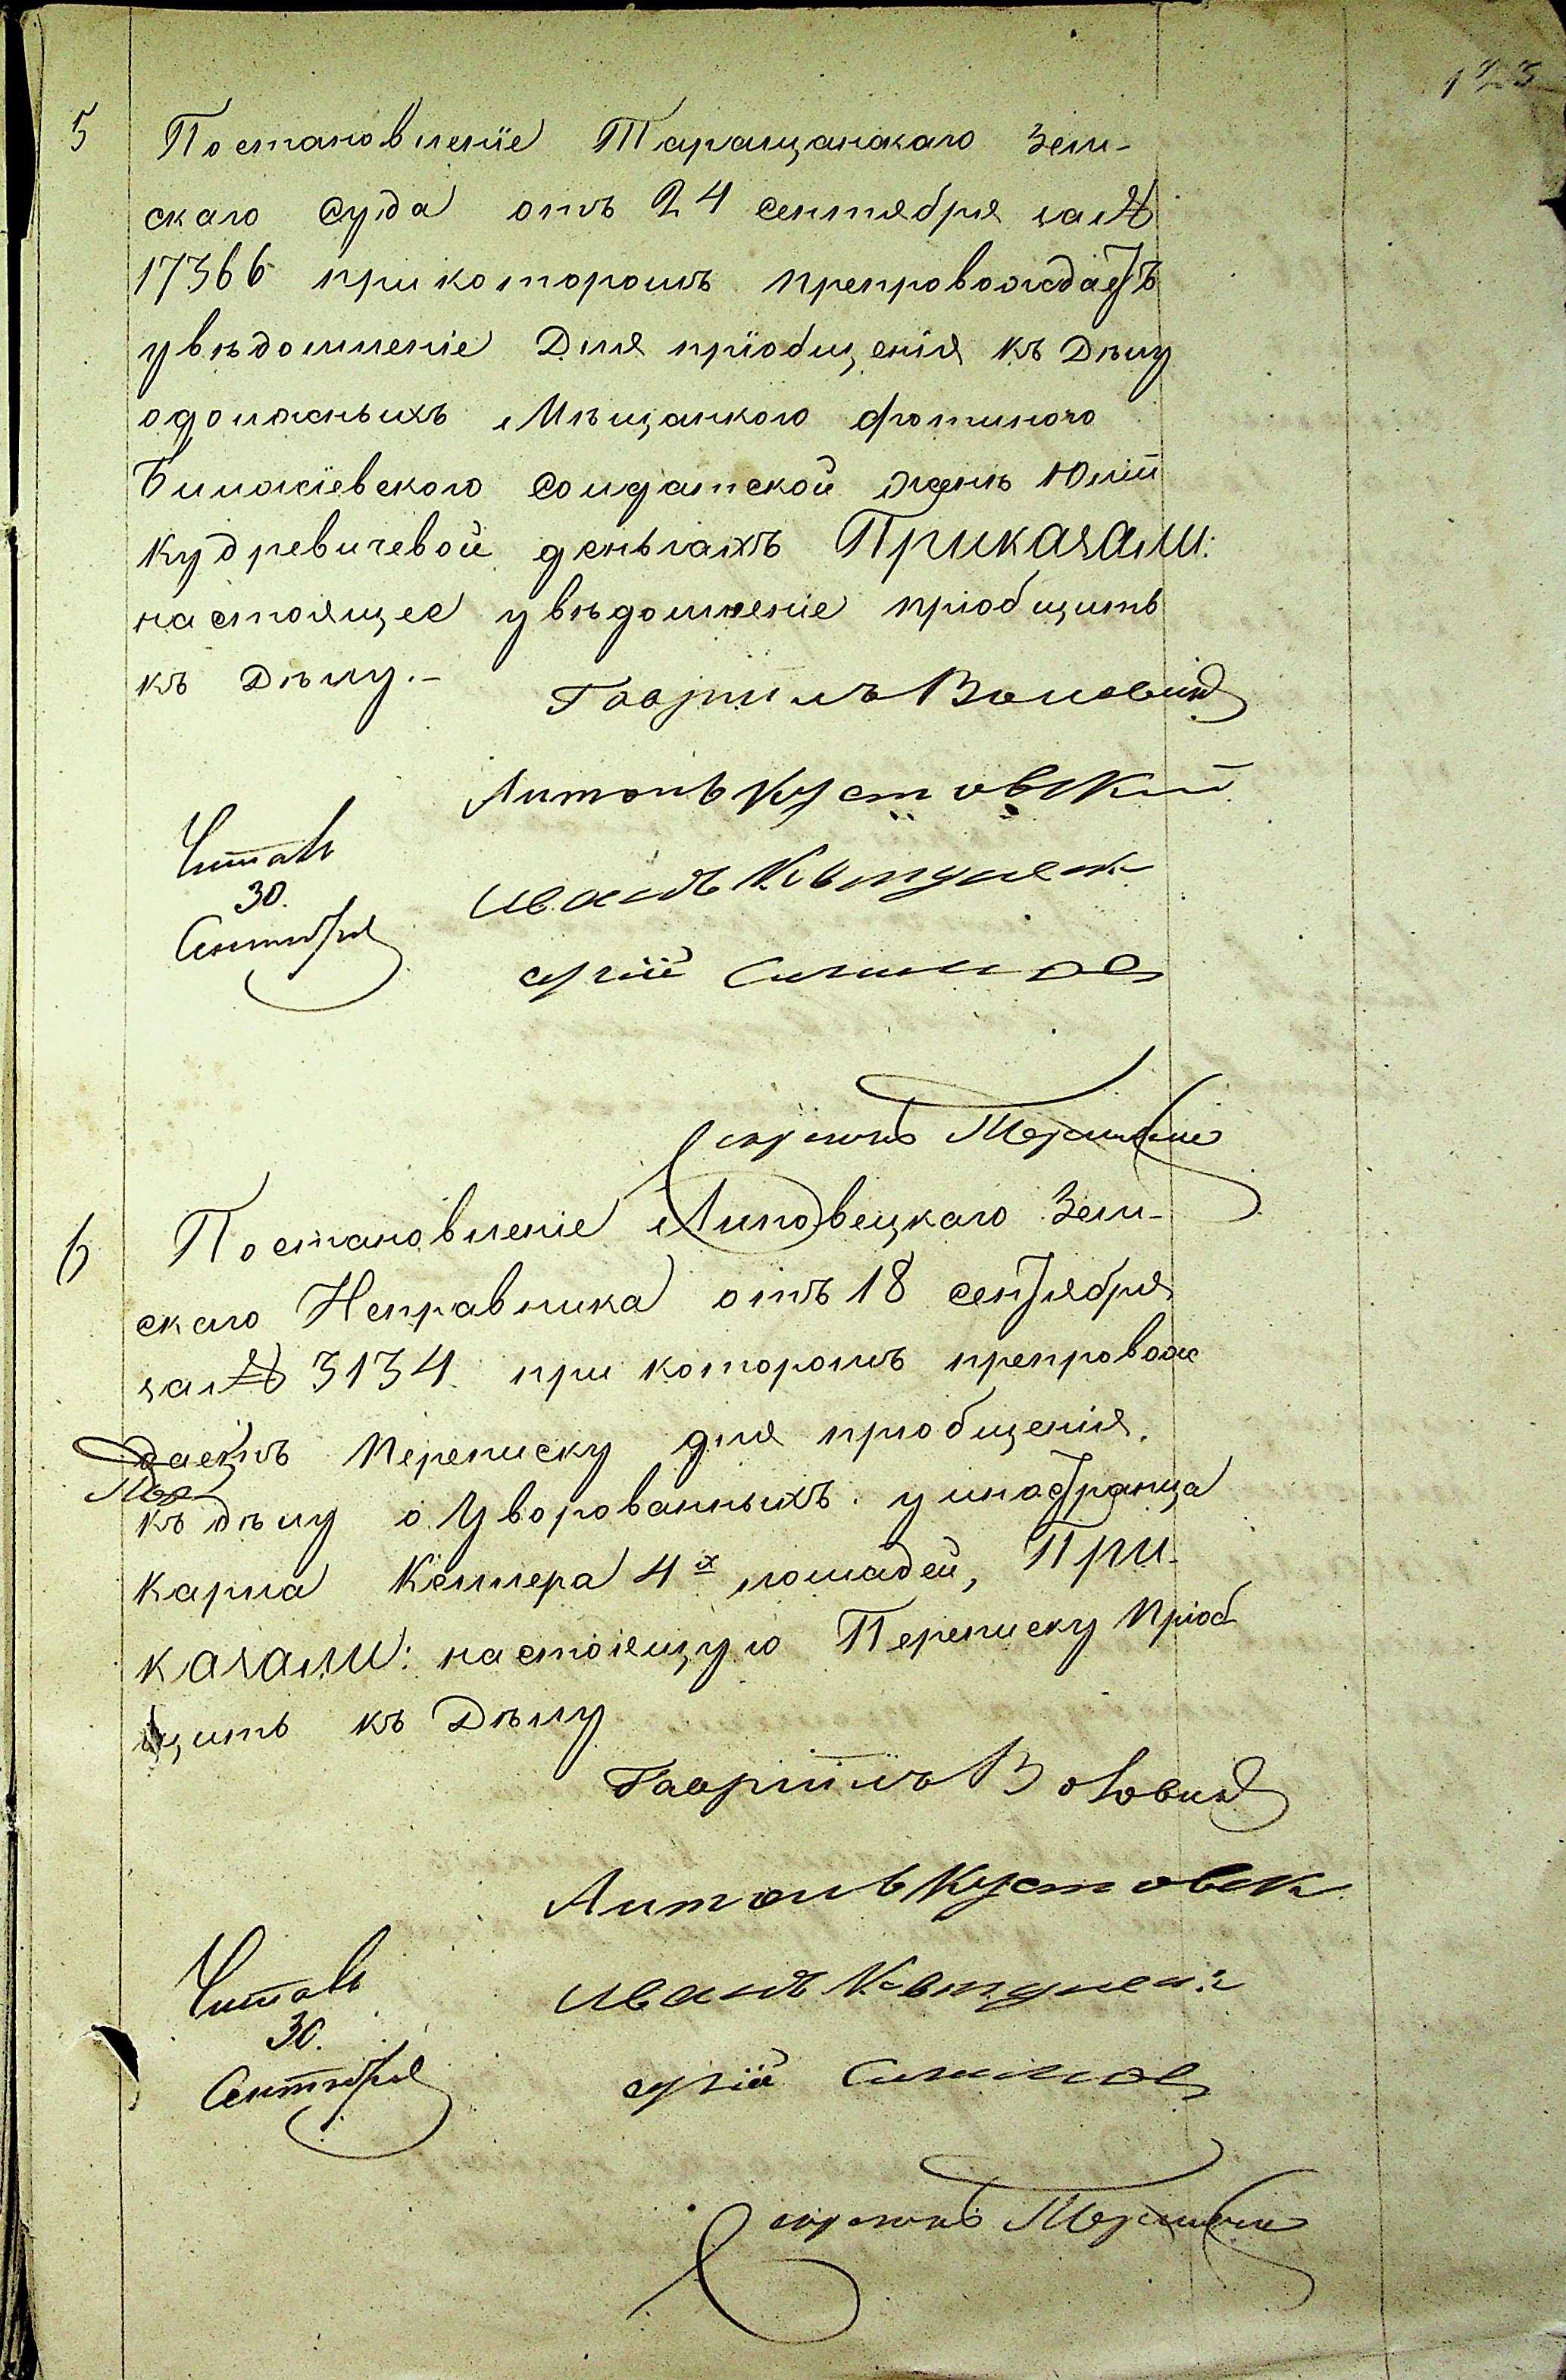 123
5
Постановленіе Таращанскаго Зем-
скаго Суда отъ 24 сентября за №
17366 при которомъ препровождаетъ
увѣдомленіе Для пріобщенія къ Дѣлу
одолжныхъ Мѣщанкого
солдатской женѣ Юліи
Кудревичевой деньгахъ Приказали:
настоящее увѣдомленіе пріобщить
къ Дѣлу.-
Гавріилъ Воловик
Антонъ Кустовский
Читалъ
30.
Сентября
Иванъ
Сергій
Секретарь
6
Постановленіе Липовецкаго Зем-
скаго Исправника отъ 18 сентября
за № 3134 при которомъ препровож
даетъ Переписку для пріобщенія
къ дѣлу о Уворованныхъ у иностранца
Карла Келлера 4х лошадей, При-
казали: настоящую Переписку Пріоб
щить къ Дѣлу
Гавріилъ Воловик
Антонъ Кустовск
Читалъ
30.
Сентября
Иванъ
Сергій
Секретарь